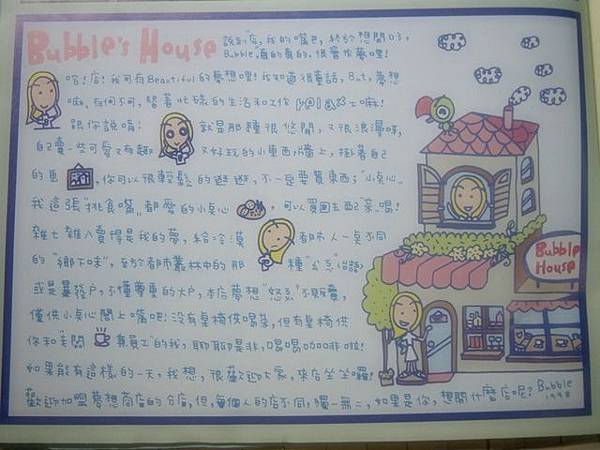 Bubble's House
說到店,我的嘴巴,終於想開口了,
Bubble真的真的,很會作夢哩!
哈!店!我可有Beautiful的夢想哩!我知道很童話,But,夢想
嘛,有何不可,替著忙碌的生活和工作
跟你說唷! 就是那種很悠閒,又很浪漫味,
自己賣一些可愛又有趣 又好玩的小東西,牆上,掛著自己
的畫 ,你可以很輕鬆的逛逛,不一定要買東西了"小桌心"
我這張"挑食嘴"都愛的小桌心 ,可以買回去配茶喝!
雜七雜八賣得是我的夢,給冷漠 都市人一桌不同
的"鄉下味",至於都市叢林中的那 種
或是暴發戶,不懂尊重的大戶,本店夢想"恕不"販賣,
僅供小桌心閣上嘴吧!沒有桌椅供喝茶,但有桌椅供
你和"老闆 兼員工"的我,聊聊是非,喝喝coco非啦!
如果能有這樣的一天,我想,很歡迎大家,來店坐坐囉!
歡迎加盟夢想商店的分店,但,每個人的店不同,獨一無二,如果是你,想開什麼店呢?
Bubble
1998
Bubble
House